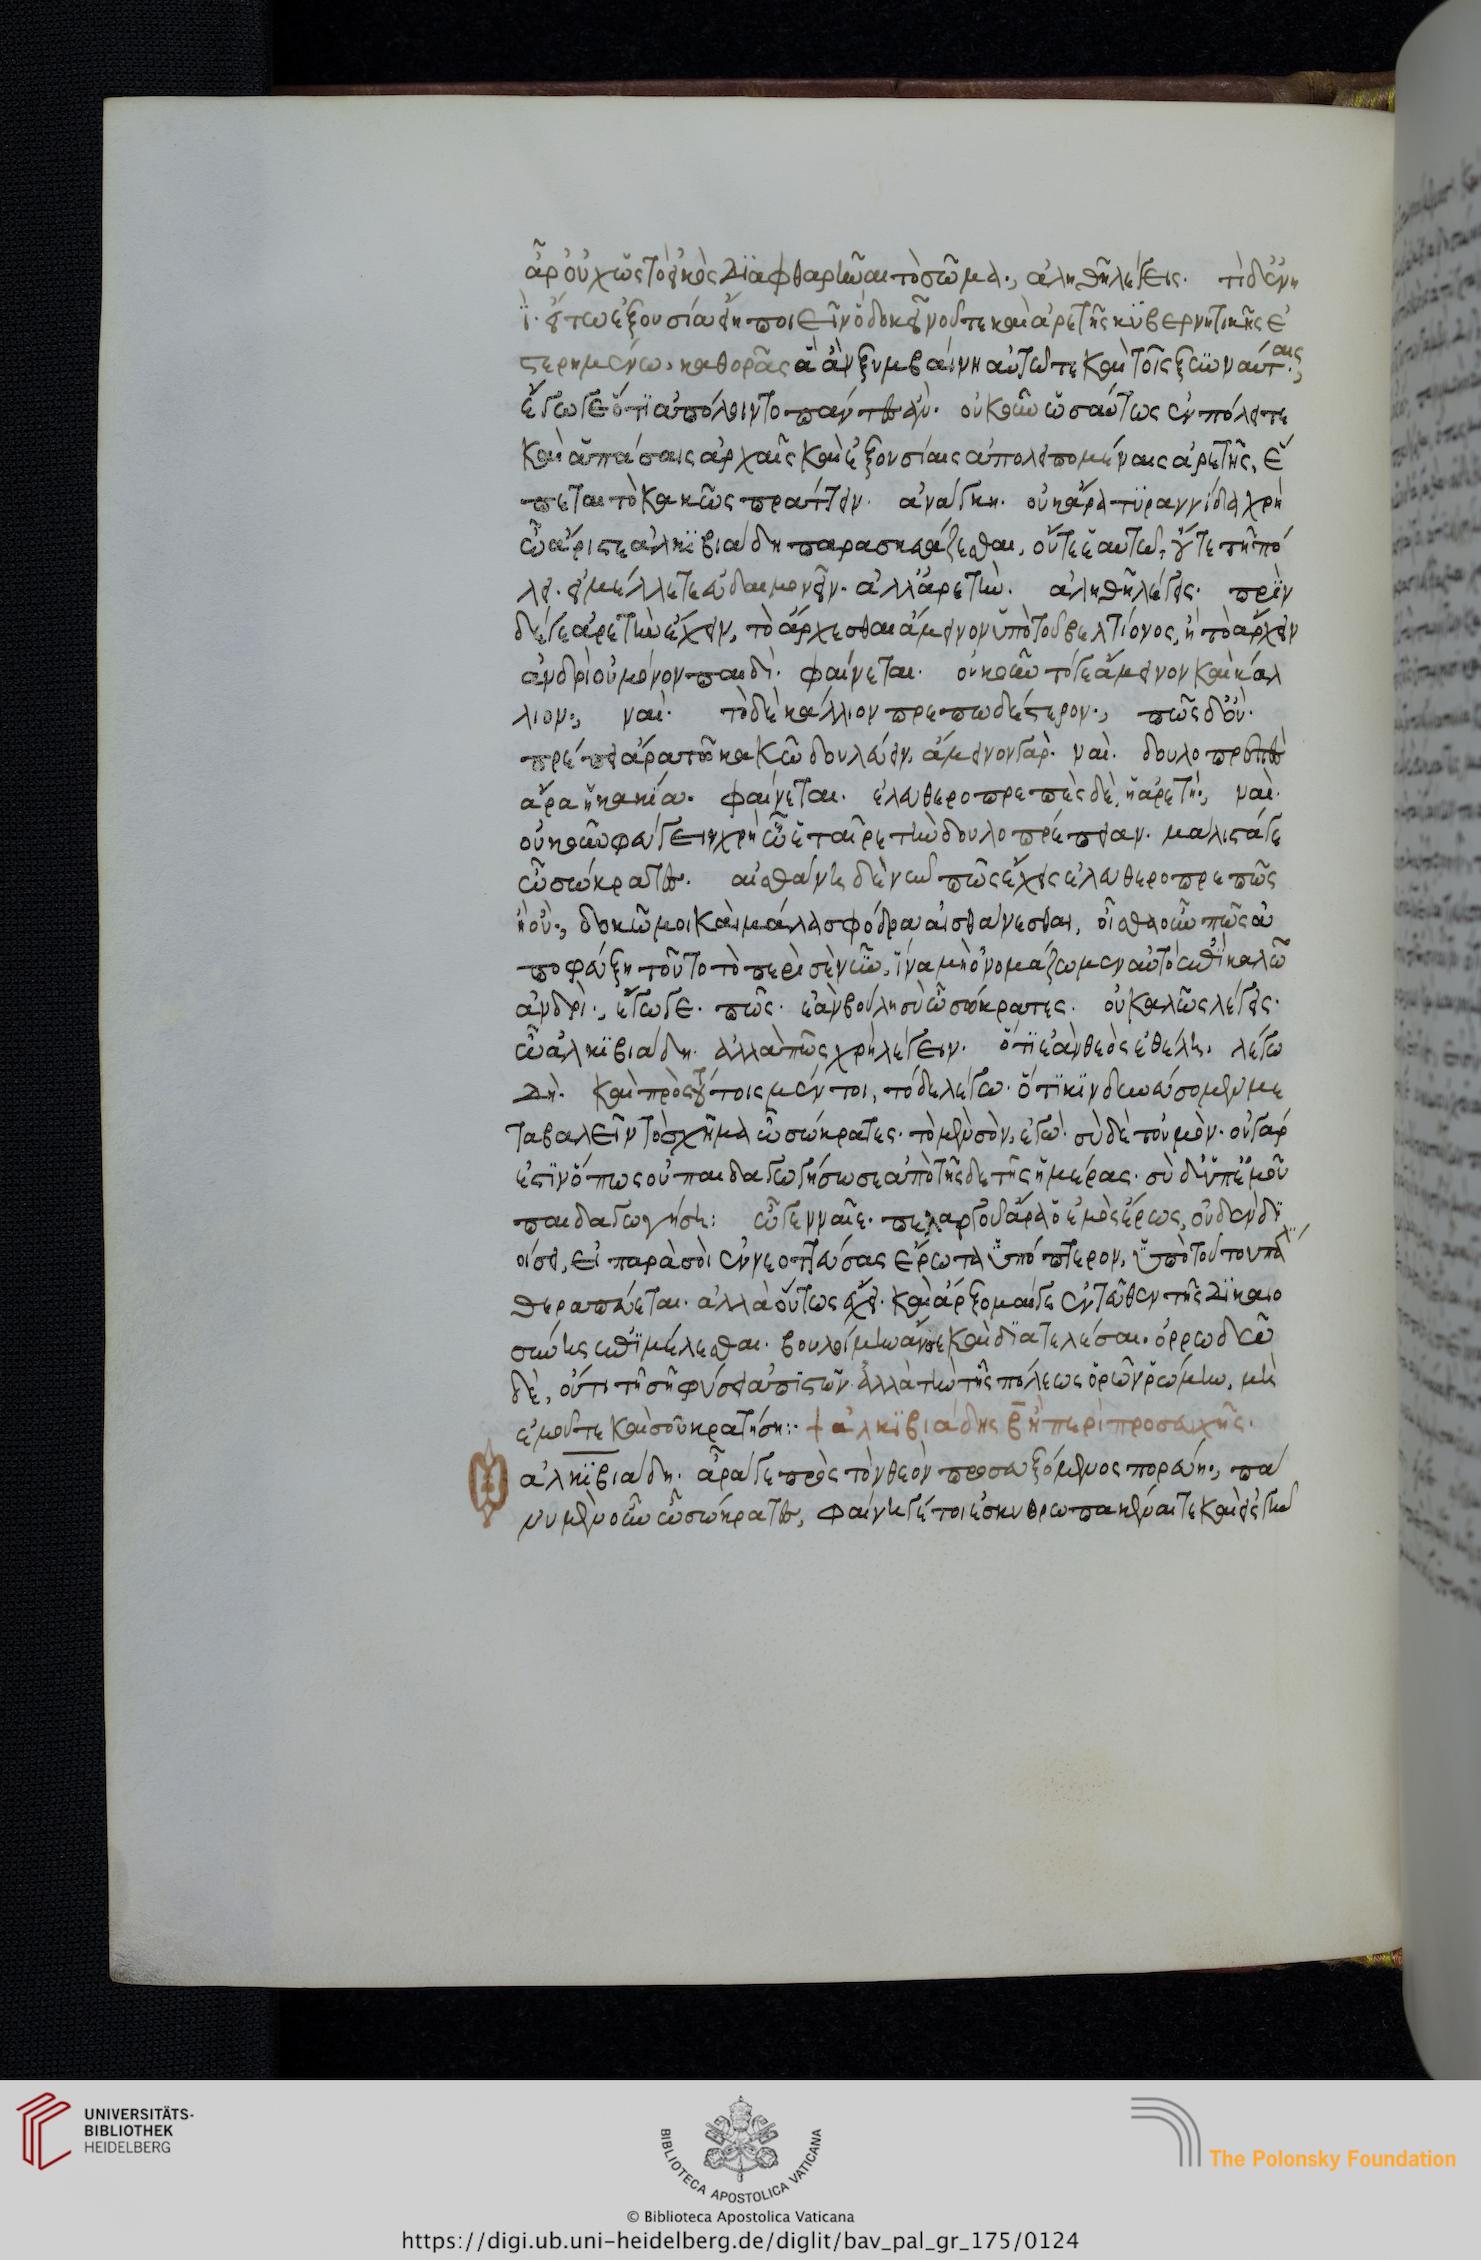 ἆρ' οὐχ ὡς τὸ εἰκὸς διαφθαρῆναι τὸ σῶμα., ἀληθῆ λέγεις. τί δ' ἐν νη
ῒ. εἴ τω ἐξουσία εἴη ποιεῖν ὃ δοκεῖ νοῦ τε καὶ ἀρετῆς κυβερνητικῆς ἐ
στερημένω, καθορᾶς ἃ ἂν ξυμβαίνη αὐτῶ τε καὶ τοῖς ξυνναύταις.,
ἔγωγε ὅτι ἀπόλοιντο πάντες ἄν. οὐκοῦν ὡσαύτως ἐν πόλει τε
καὶ ἁπάσαις ἀρχαῖς καὶ ἐξουσίαις ἀπολειπομέναις ἀρετῆς, ἕ
πεται τὸ κακῶς πράττειν. ἀνάγκη. οὐκ ἄρα τυραννίδα χρὴ
ὦ ἄριστε ἀλκιβιάδη παρασκευάζεσθαι, οὔτε ἑαυτῶ, οὔτε τῆ πό
λει. εἰ μέλλετε εὐδαιμονεῖν. ἀλλ' ἀρετήν. ἀληθῆ λέγεις. πρὶν
δέ γε ἀρετὴν ἔχειν, τὸ ἄρχεσθαι ἄμεινον ὑπὸ τοῦ βελτίονος, ἢ τὸ ἄρχειν
ἀνδρὶ οὐ μόνον παιδί. φαίνεται. οὐκοῦν τό γε ἄμεινον καὶ κάλ
λιον., ναί. τὸ δὲ κάλλιον πρεπωδέστερον., πῶς δ' οὔ.
πρέπει ἄρα τῶ κακῶ δουλεύειν, ἄμεινον γάρ. ναί. δουλοπρεπὲς
ἄρα ἡ κακία. φαίνεται. ἐλευθεροπρεπὲς δὲ, ἡ ἀρετή., ναί.
οὐκοῦν φεύγειν χρὴ ὦ ἑταῖρε τὴν δουλοπρέπειαν. μάλιστά γε
ὦ σώκρατες. αἰσθάνει δὲ νῦν πῶς ἔχεις ἐλευθεροπρεπῶς
ἢ οὔ., δοκῶ μοι καὶ μάλα σφόδρα αἰσθάνεσθαι, οἶσθα οὖν πῶς ἀ
ποφεύξη τοῦτο τὸ περὶ σὲ νῦν, ἵνα μὴ ὀνομάζωμεν αὐτὸ ἐπὶ καλῶ
ἀνδρί., ἔγωγε. πῶς. ἐὰν βούλη σὺ ὦ σώκρατες. οὐ καλῶς λέγεις.
ὦ ἀλκιβιάδη. ἀλλὰ πῶς χρὴ λέγειν. ὅτι ἐὰν θεὸς ἐθέλη. λέγω
δή. καὶ πρὸς τούτοις μέντοι, τόδε λέγω. ὅτι κινδυνεύσομεν με
ταβαλεῖν τὸ σχῆμα ὦ σώκρατες. τὸ μὲν σὸν, ἐγώ. σὺ δὲ τοὐμόν. οὐ γάρ
ἐστιν ὅπως οὐ παιδαγωγήσω σε ἀπὸ τῆσδε τῆς ἡμέρας. σὺ δ' ὑπ' ἐμοῦ
παιδαγωγήση: ὦ γενναῖε. πελαργοῦ ἄρα ὁ ἐμὸς ἔρως, οὐδὲν δι
οίσει, εἰ παρὰ σοὶ ἐννεοττεύσας ἔρωτα ὑπόπτερον, ὑπὸ τούτου πάλιν
θεραπεύεται. ἀλλὰ οὕτως ἔχει. καὶ ἄρξομαί γε ἐντεῦθεν τῆς δικαιο
σύνης ἐπιμέλεσθαι. βουλοίμην ἄν σε καὶ διατελέσαι. ὀρρωδῶ
δὲ, οὔτι τῆ σῆ φύσει ἀπιστῶν. ἀλλὰ τὴν τῆς πόλεως ὁρῶν ῥώμην, μὴ
ἐμοῦ τε καὶ σοῦ κρατήση:· † ἀλκιβιάδης β̄ ἢ περὶ προσευχῆς.
ἀλκιβιάδη. ἆρά γε πρὸς τὸν θεὸν προσευξόμενος πορεύη., πά
νυ μὲν οὖν ὦ σώκρατες, φαίνη γέ τοι ἐσκυθρωπακέναι τε καὶ εἰς γῆν
UNIVERSITÄTS-
BIBLIOTHEK
HEIDELBERG
BIBLIOTECA APOSTOLICA VATICANA
The Polonsky Foundation
© Biblioteca Apostolica Vaticana
https://digi.ub.uni-heidelberg.de/diglit/bav_pal_gr_175/0124